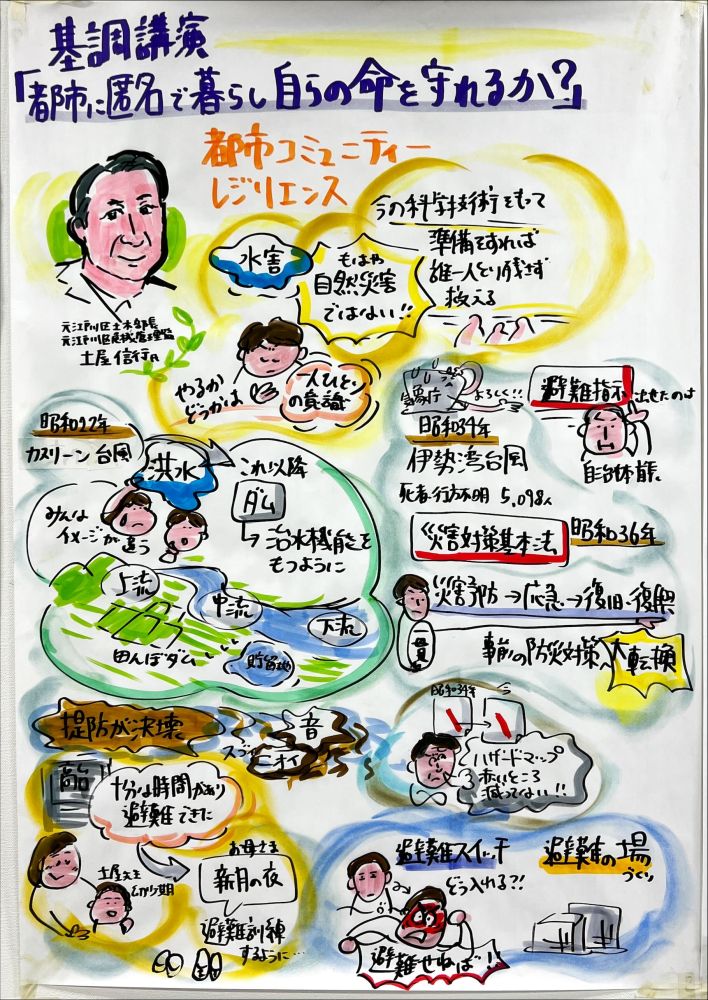 基調講演
「都市に匿名で暮らし自らの命を守れるか?」
都市コミュニティー
レジリエンス
元江戸川区土木部長
元江戸川区危機管理監
土屋信行氏
水害
もはや
自然災害
ではない!!
今の科学技術をもって
準備をすれば
誰一人とり残さず
救える
やるか
どうかは
一人ひとり
の意識
昭和22年
カスリーン台風
洪水
みんな
イメージが違う
これ以降
ダム
→治水機能を
もつように
上流
中流
下流
田んぼダム
貯留地
気象庁
よろしく!!
避難指示
出せたのは
自治体首長
昭和34年
伊勢湾台風
死者・行方不明 5,098人
災害対策基本法
昭和36年
災害予防→応急→復旧・復興
一貫
事前の防災対策へ
大転換
堤防が決壊
スゴイ
音
ニオイ
十分な時間があり
避難できた
土屋さん
ひがり期
お母さま
新月の夜
避難訓練
するように…
昭和34年
今
ハザードマップ
赤いところ
減ってない!!
避難スイッチ
どう入れる?!
避難せねば!!
避難の場
づくり